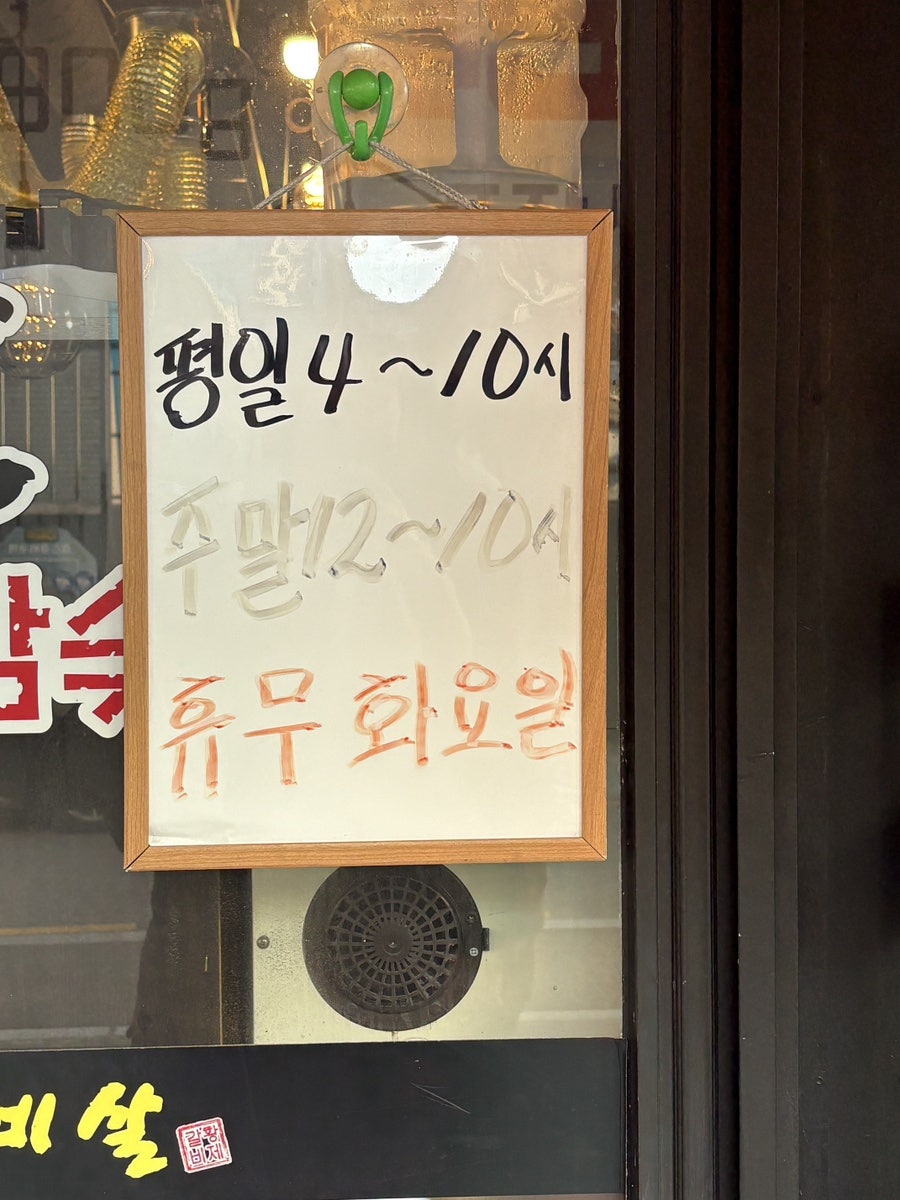 평일 4~10시
주말 12~10시
휴무 화요일
비살
황제
갈비